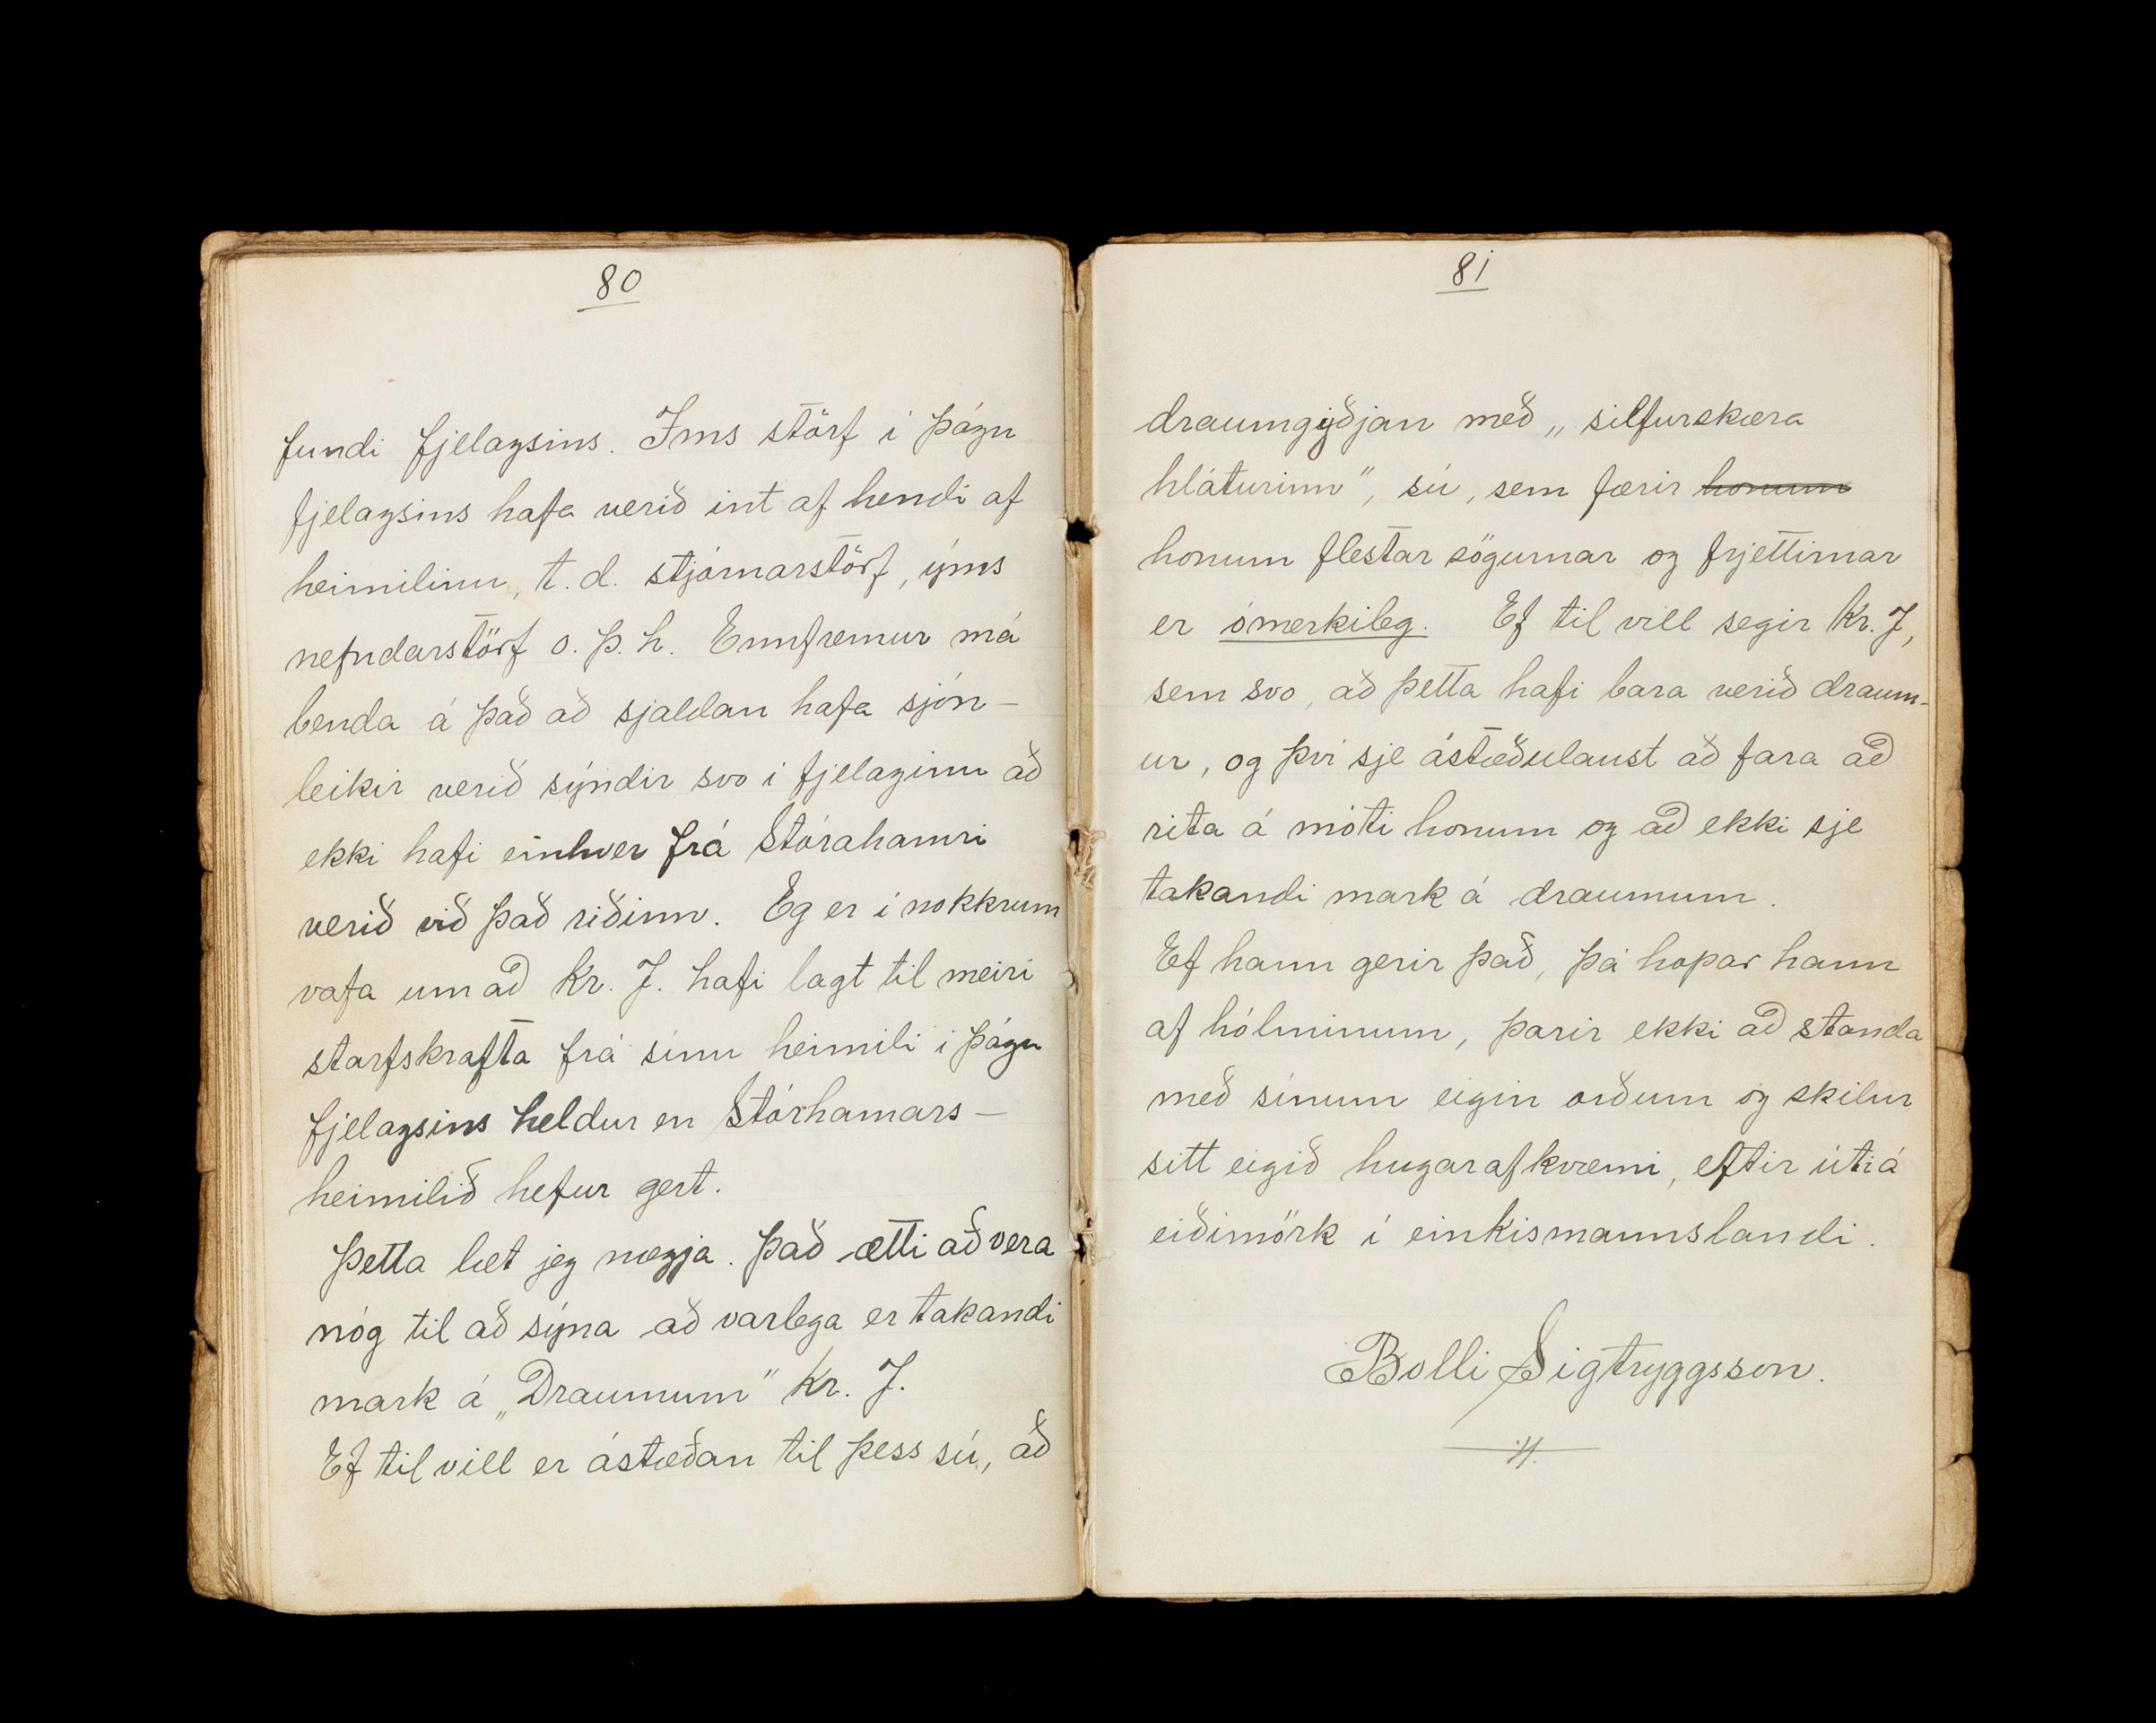 80
fundi fjelagsins. Ýms störf í þágu
fjelagsins hafa verið int af hendi af
heimilinu, t.d. stjórnarstörf, ýms
nefndarstörf o.þ.h. Ennfremur má
benda á það að sjaldan hafa sjón-
leikir verið sýndir svo í fjelaginu að
ekki hafi einhver frá Stórahamri
verið við það riðinn. Eg er í nokkrum
vafa um að Kr. J. hafi lagt til meiri
starfskrafta frá sínu heimili í þágu
fjelagsins heldur en Stórhamars-
heimilið hefur gert.
Þetta læt jeg nægja. Það ætti að vera
nóg til að sýna að varlega er takandi
mark á „Draumum" Kr. J.
Ef til vill er ástæðan til þess sú, að
81
draumgyðjan með „silfurskæra
hláturinn", sú, sem færir honum
honum flestar sögurnar og frjettirnar
er ómerkileg. Ef til vill segir Kr. J,
sem svo, að þetta hafi bara verið draum-
ur, og því sje ástæðulaust að fara að
rita á móti honum og að ekki sje
takandi mark á draumum.
Ef hann gerir það, þá hopar hann
af hólminum, þorir ekki að standa
með sínum eigin orðum og skilur
sitt eigið hugarafkvæmi, eftir úti á
eiðimörk í einkismannslandi.
Bolli Sigtryggsson.